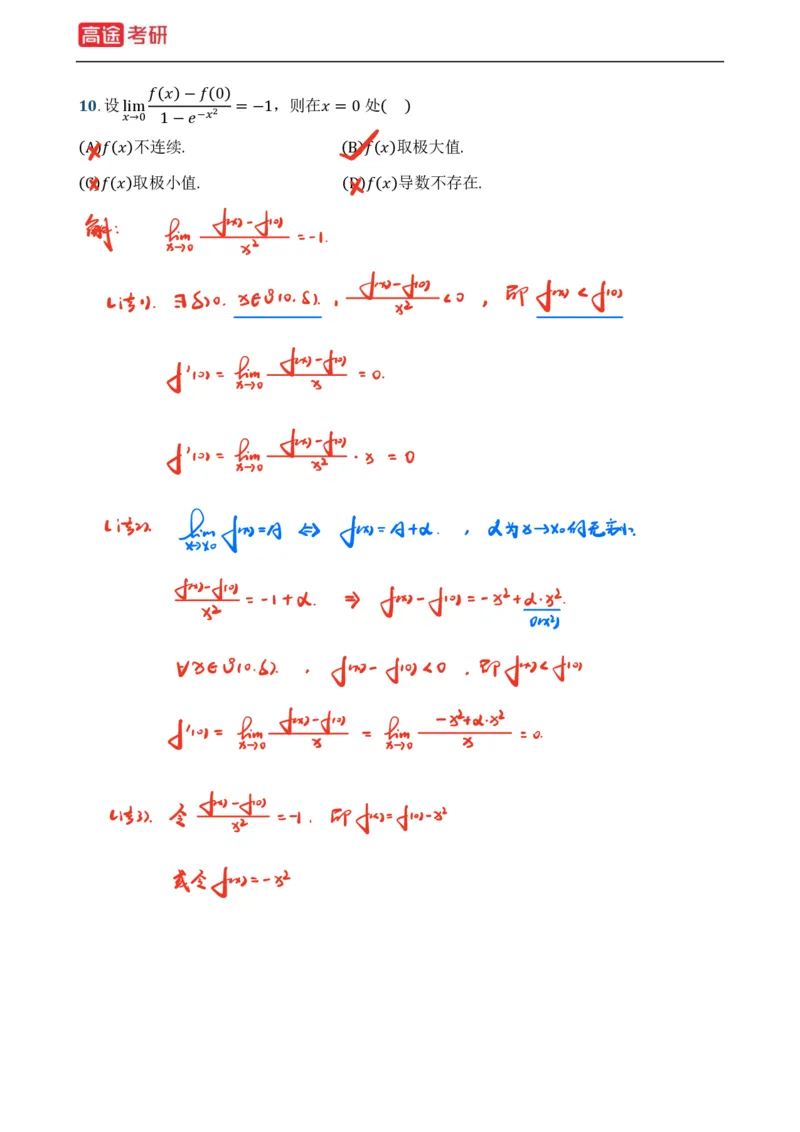 高途 考研
10. 设 lim_{x→0} \frac{f(x)-f(0)}{1-e^{-x^2}} = -1，则在x = 0 处( )
(A)f(x)不连续. (B)f(x)取极大值.
(C)f(x)取极小值. (D)f(x)导数不存在.
解: lim_{x→0} \frac{f(x)-f(0)}{x^2} = -1.
(法1). ∃δ>0. x∈Ů(0.δ). , \frac{f(x)-f(0)}{x^2} <0 , 即 f(x) < f(0)
f'(0) = lim_{x→0} \frac{f(x)-f(0)}{x} = 0.
f'(0) = lim_{x→0} \frac{f(x)-f(0)}{x^2} · x = 0
(法2). lim_{x→x_0} f(x)=A ⇔ f(x)=A+α. , α为x→x_0的无穷小.
\frac{f(x)-f(0)}{x^2} = -1+α. ⇒ f(x)-f(0) = -x^2+α·x^2.
o(x^2)
∀x∈Ů(0.δ). , f(x)-f(0)<0 , 即f(x)<f(0)
f'(0) = lim_{x→0} \frac{f(x)-f(0)}{x} = lim_{x→0} \frac{-x^2+α·x^2}{x} = 0.
(法3). 令 \frac{f(x)-f(0)}{x^2} = -1. 即f(x)=f(0)-x^2
或令f(x)=-x^2